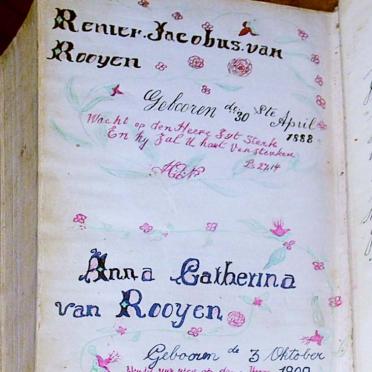 Renier. Jacobus. van
Rooyen
Geboren de 30 Ste April
1888
Wacht op den Heere Zyt Sterk
En hy Zal U hart Versterken
Ps 27:14
Anna Catherina
van Rooyen
Geboren de 3 Oktober